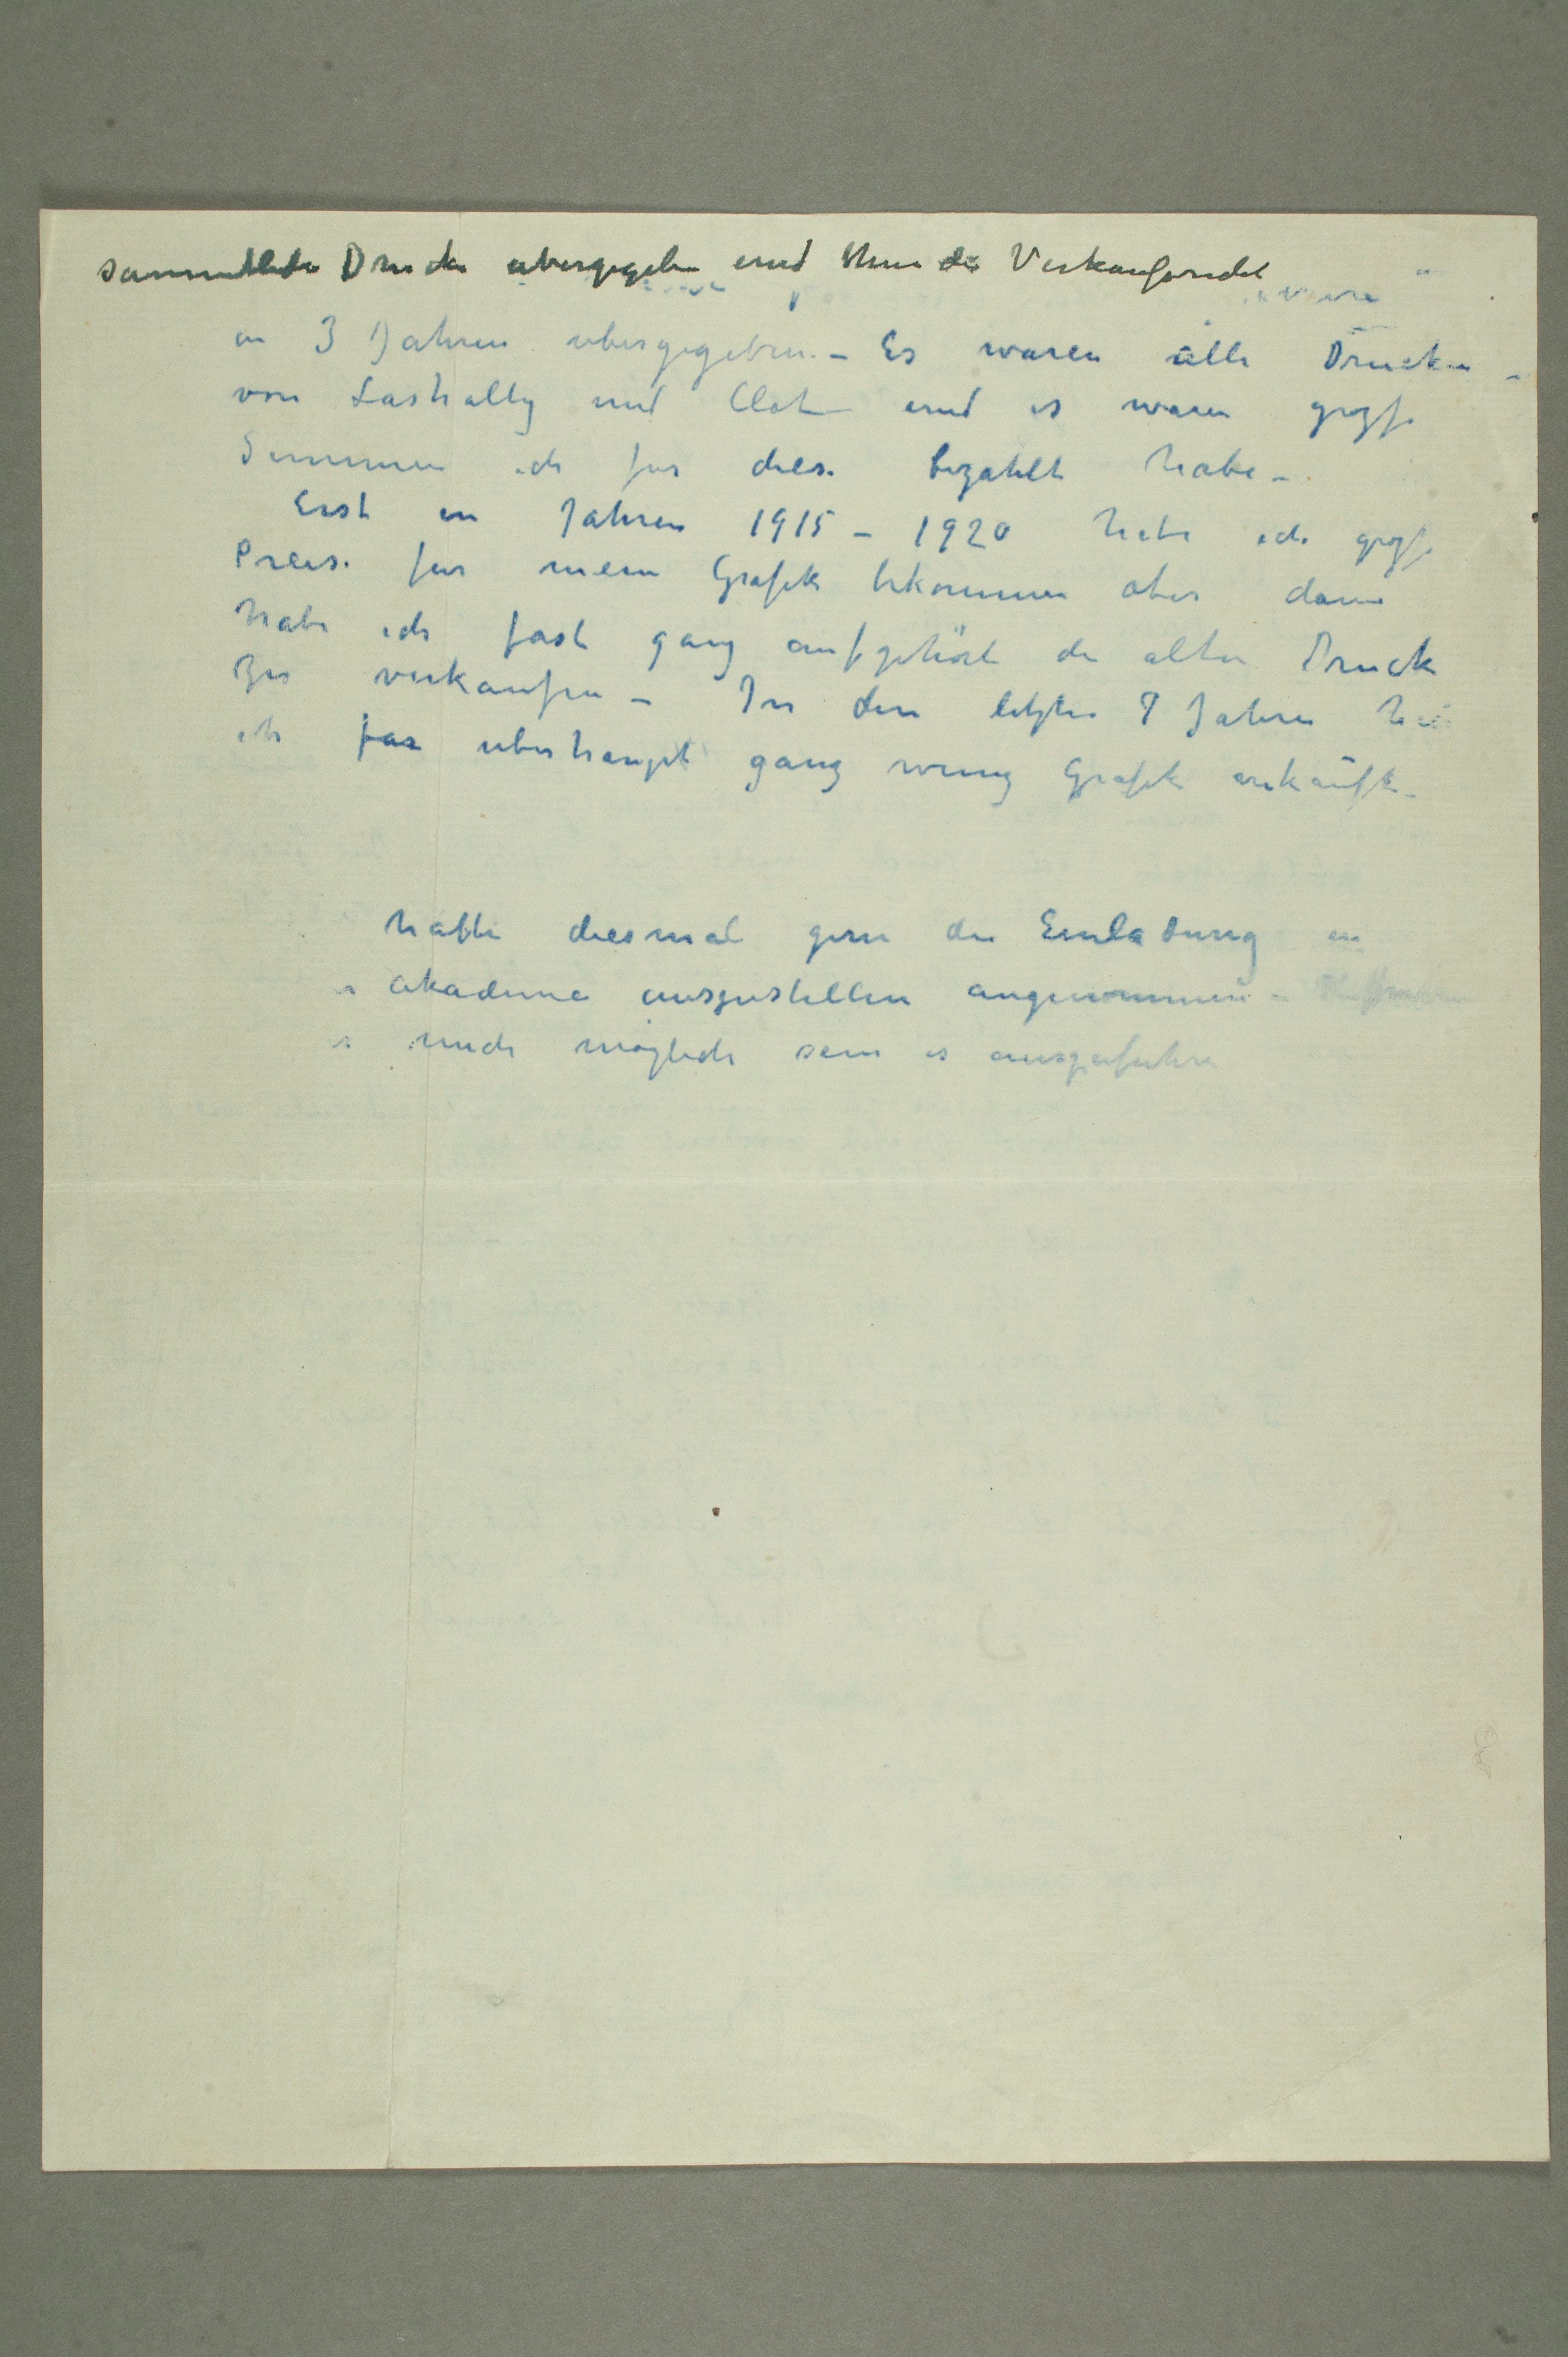 sammtliche Drucke ubergegeben und Ihnen die Verkaufsrecht
in 3 Jahren ubergegeben – Es waren alle Drucke –
von Lashally und Clot und es waren grosse
Summen ich fur diese bezahlt habe –
Erst in Jahren 1915 – 1920 habe ich grosse
Preise fur mein Grafik bekommen aber dann
habe ich fast ganz aufgehört die alten Druck
zu verkaufen – In den letzten 7 Jahren
ich fas uberhaupt ganz wenig Grafik verkauft –
hatte diesmal gern die Einladung in
akademie auszustellen angenommen –
mich möglich sein es auszufuhren